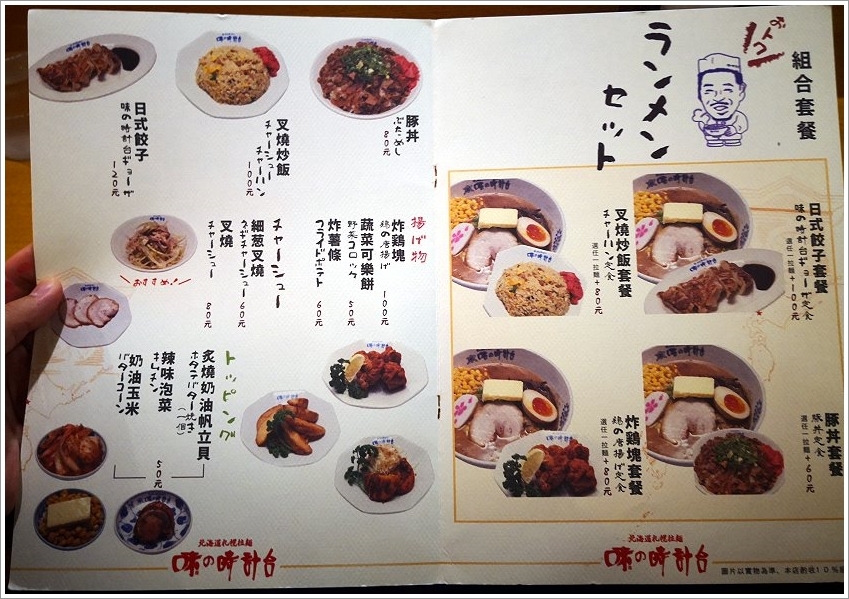 おトク!
組合套餐
ランメン
セット
日式餃子套餐
味の時計台ギョーザ定食
選任一拉麵+100元
叉燒炒飯套餐
チャーハン定食
選任一拉麵+80元
豚丼套餐
豚丼定食
選任一拉麵+60元
炸鷄塊套餐
鶏の唐揚げ定食
選任一拉麵+80元
北海道札幌拉麵
味の時計台
圖片以實物為準、本店酌收10%
豚丼
ぶためし
80元
叉燒炒飯
チャーシュー
チャーハン
100元
日式餃子
味の時計台ギョーザ
120元
揚げ物
炸鷄塊
鶏の唐揚げ
100元
蔬菜可樂餅
野菜コロッケ
50元
炸薯條
フライドポテト
60元
チャーシュー
細葱叉燒
ネギチャーシュー
60元
叉燒
チャーシュー
80元
おすすめ!
トッピング
炙燒奶油帆立貝
ホタテバター焼き
(一個)
辣味泡菜
キムチ
奶油玉米
バターコーン
50元
北海道札幌拉麵
味の時計台